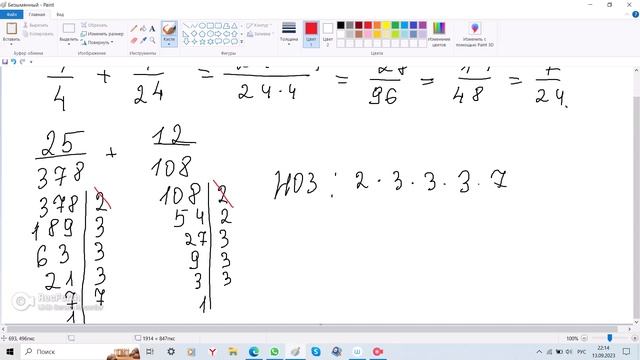 Безымянный - Paint
Файл Главная Вид
Вырезать
Копировать
Вставить
Выделить
Обрезать
Изменить размер
Повернуть
Кисти
Контур
Заливка
Толщина
Цвет 1
Цвет 2
Изменение цветов
Изменить с помощью Paint 3D
Буфер обмена Изображение Инструменты Фигуры Цвета
4 + 24 = 24·4 = 28/96 = 48 = 7/24.
25/378 + 12/108
378 | 2
189 | 3
63 | 3
21 | 3
7 | 7
1
108 | 2
54 | 2
27 | 3
9 | 3
3 | 3
1
НОЗ : 2 · 3 · 3 · 3 · 7
693, 496пкс
1914 × 847пкс
100%
Поиск
РУС
22:14
13.09.2023